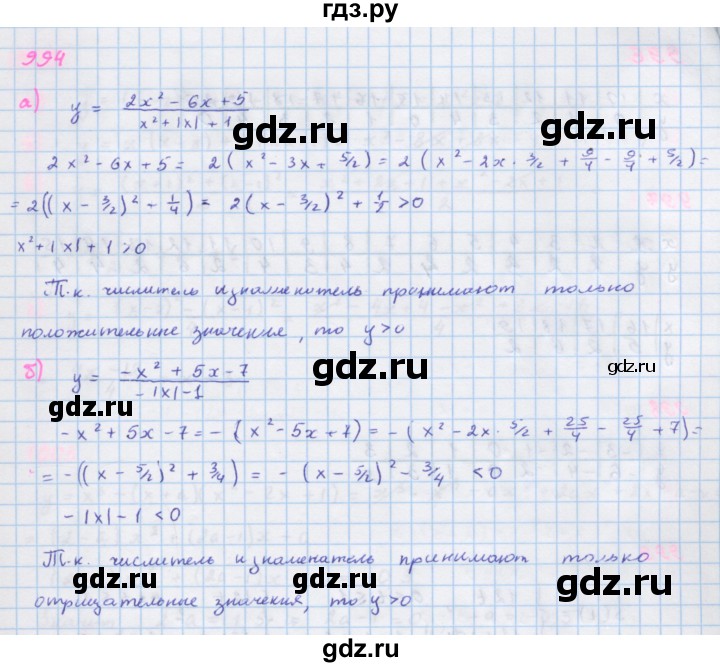 гдз.ру
994
а) y = (2x² - 6x + 5)/(x² + |x| + 1)
2x² - 6x + 5 = 2(x² - 3x + 5/2) = 2(x² - 2x · 3/2 + 9/4 - 9/4 + 5/2) =
= 2((x - 3/2)² + 1/4) = 2(x - 3/2)² + 1/2 > 0
x² + |x| + 1 > 0
Т.к. числитель и знаменатель принимают только
положительные значения, то y > 0
б) y = (-x² + 5x - 7)/(-|x| - 1)
-x² + 5x - 7 = -(x² - 5x + 7) = -(x² - 2x · 5/2 + 25/4 - 25/4 + 7) =
= -((x - 5/2)² + 3/4) = -(x - 5/2)² - 3/4 < 0
-|x| - 1 < 0
Т.к. числитель и знаменатель принимают только
отрицательные значения, то y > 0
gdz.ru
gdz.ru
gdz.ru
gdz.ru
gdz.ru
gdz.ru
gdz.ru
gdz.ru
gdz.ru
gdz.ru
gdz.ru